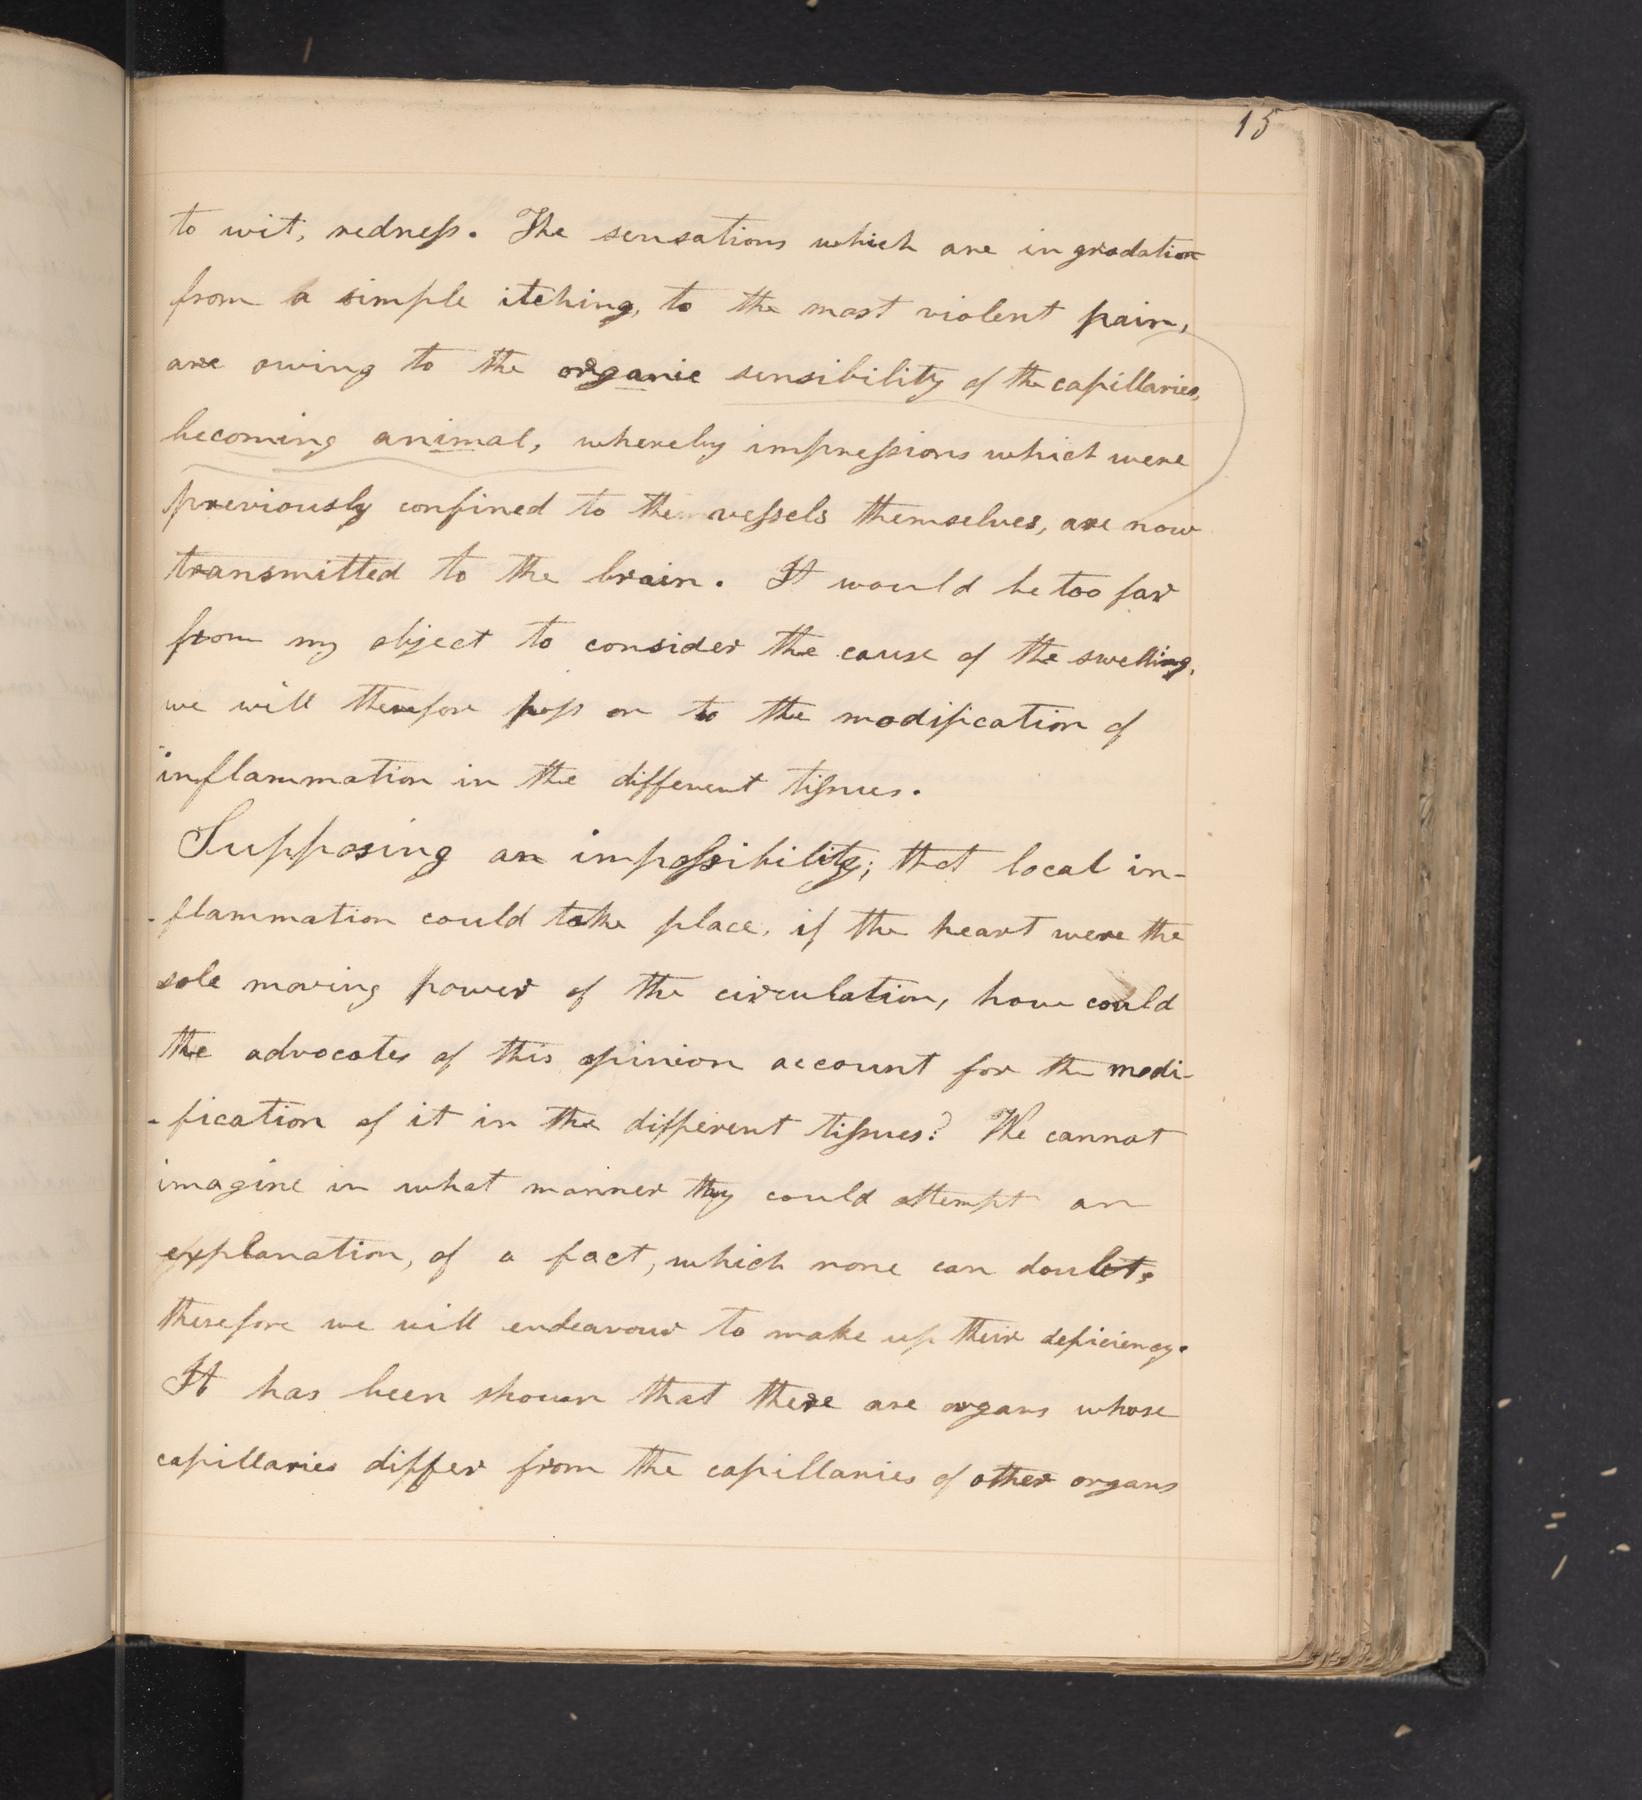 15
to wit, redness. The sensations which are in gradation
from a simple itching, to the most violent pain,
are owing to the organic sensibility of the capillaries,
becoming animal, whereby impressions which were
previously confined to the vessels themselves, are now
transmitted to the brain. It would be too far
from my object to consider the cause of the swelling,
we will therefore pass on to the modification of
inflammation in the different tissues.
Supposing an impossibility; that local in-
-flammation could take place, if the heart were the
sole moving power of the circulation, how could
the advocates of this opinion account for the modi-
-fication of it in the different tissues? We cannot
imagine in what manner they could attempt an
explanation, of a fact, which none can doubt,
therefore we will endeavour to make up their deficiency.
It has been shown that there are organs whose
capillaries differ from the capillaries of other organs